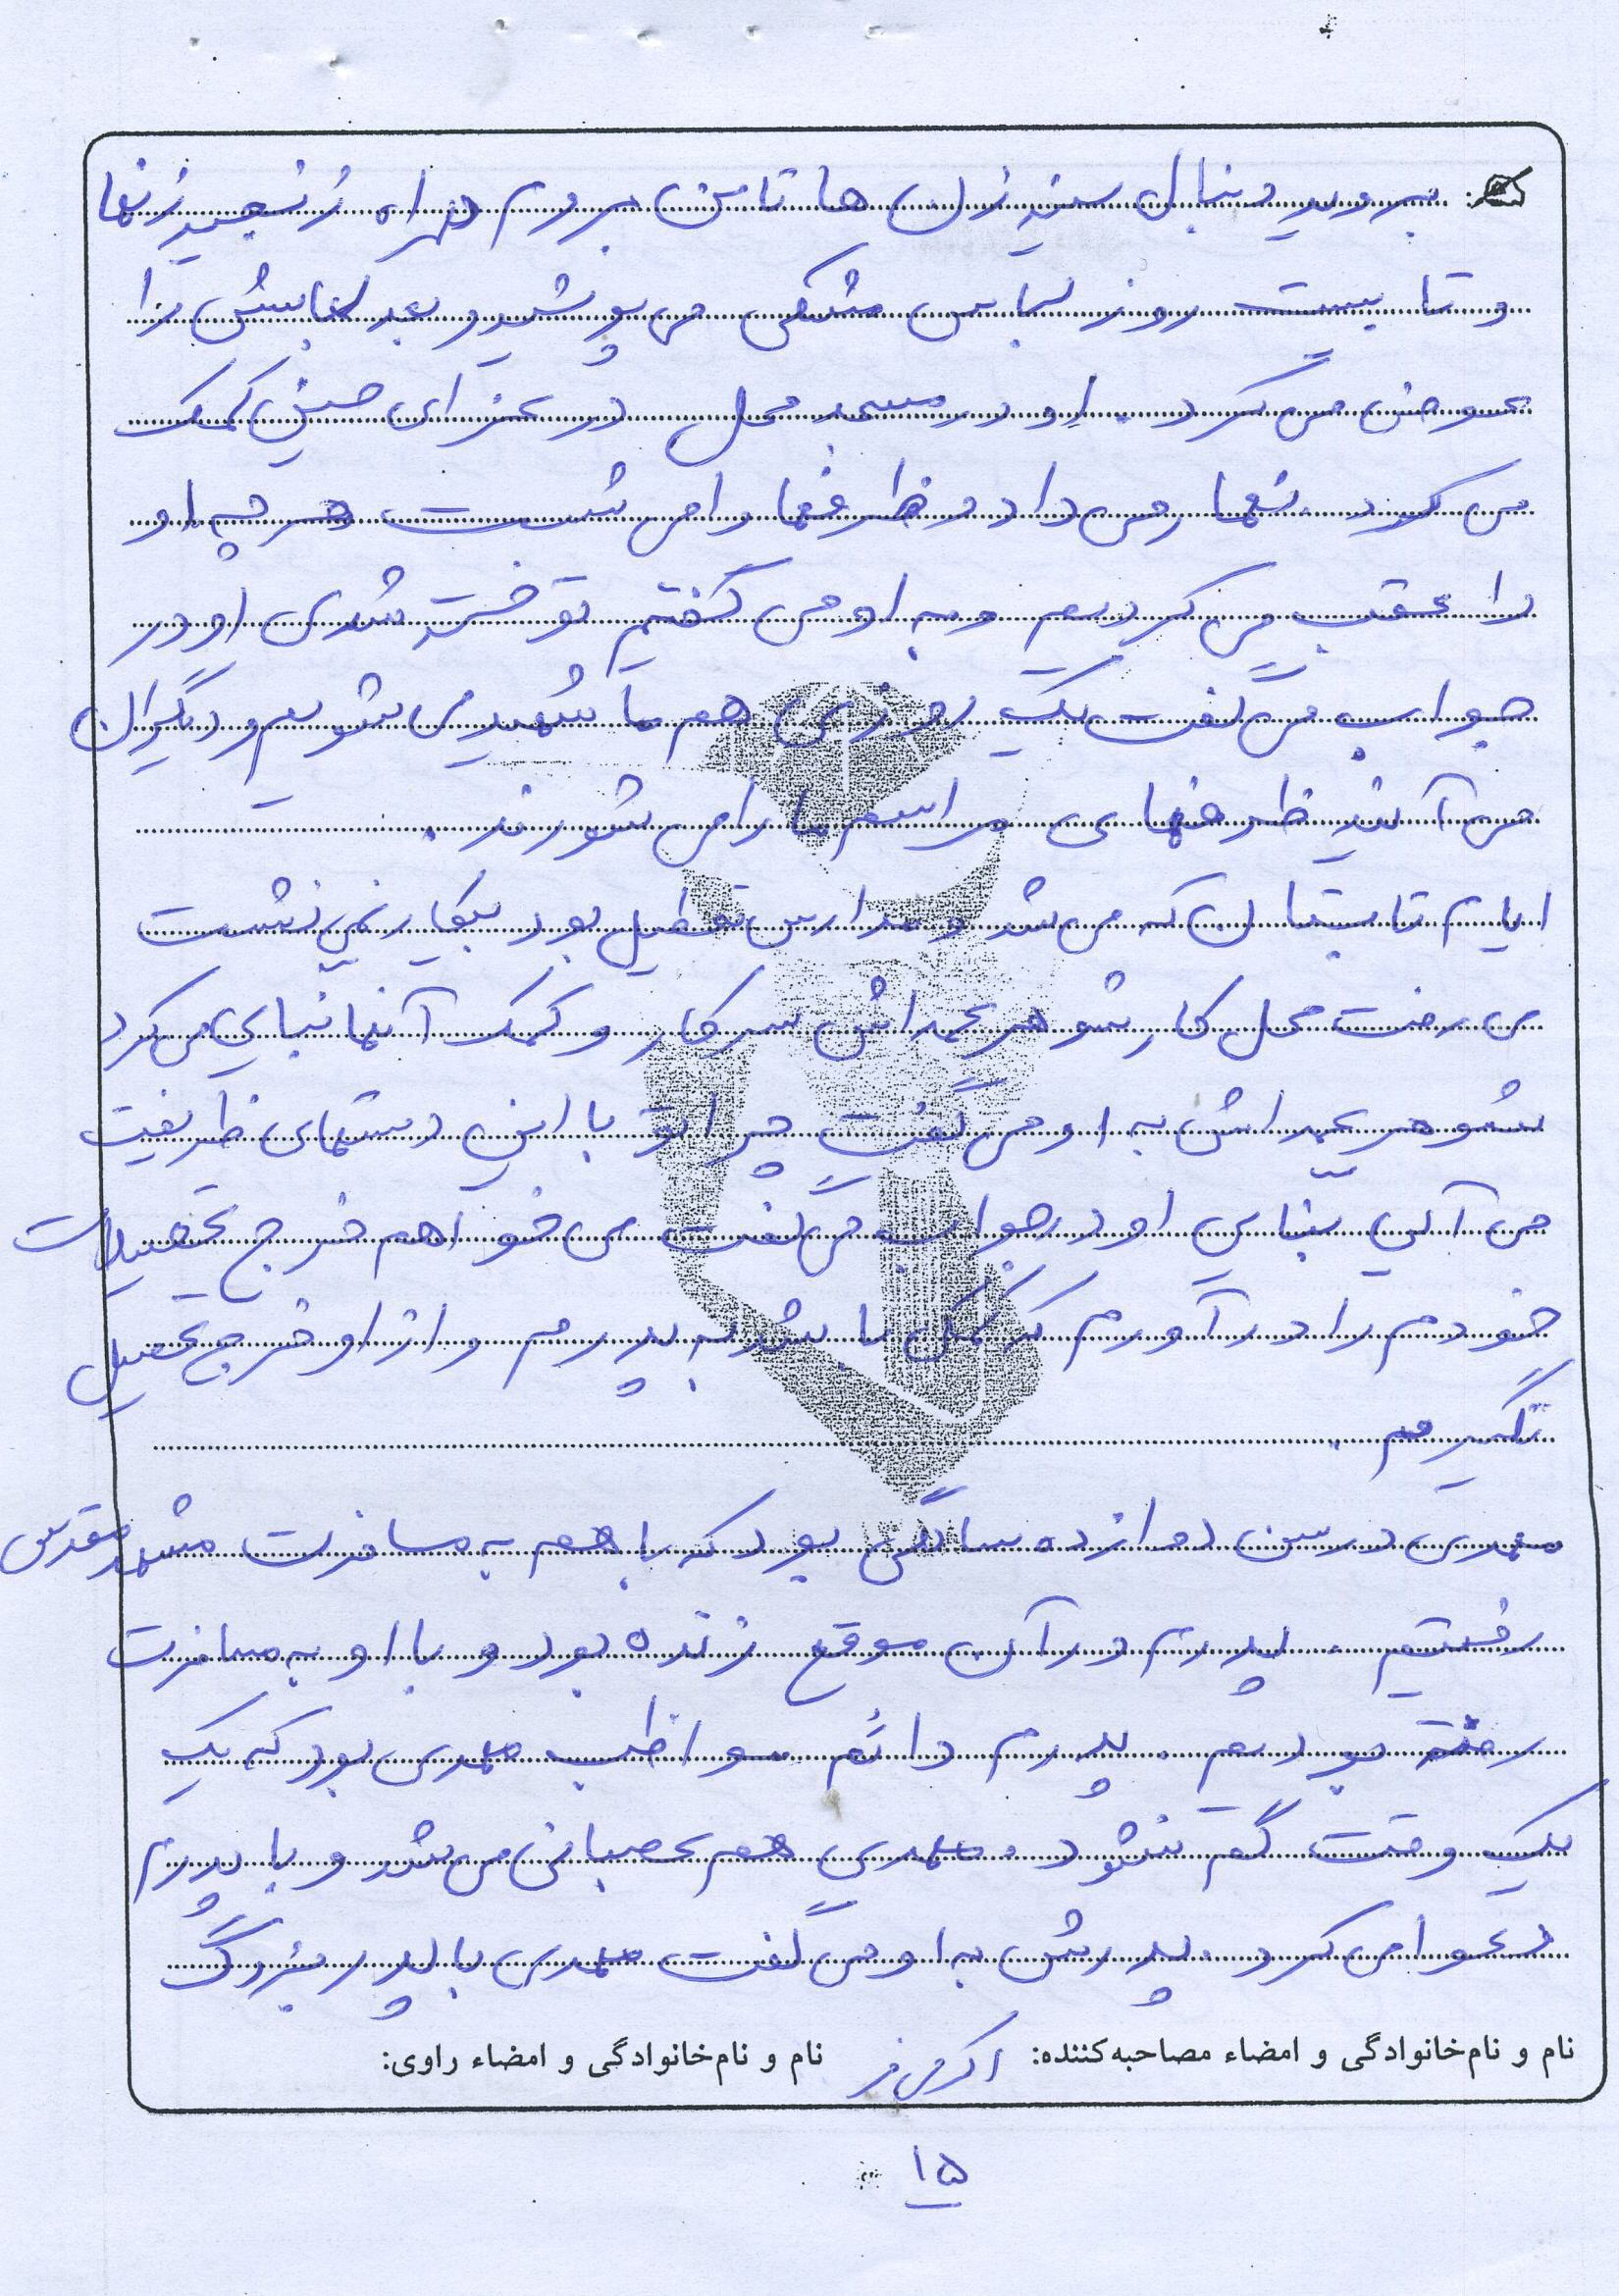 بروید دنبال سینه زن ها تا من بروم همراه زنجیر زنها
و تا بیست روز لباس مشکی می پوشید و بعد لباسش را
عوض می کرد. او در مسجد محل در عزای حسینی کمک
می کرد. نهار می داد و ظرفها را می شست هر چه او
را عقب می کردیم و به او می گفتیم تو خسته شدی او در
جواب می گفت یک روزی هم ما شهید می شویم و دیگران
می آیند ظرفهای مراسم ما را می شورند.
ایام تابستان که می شد و مدارس تعطیل بود بیکار نمی نشست
می رفت محل کار شوهر عمه اش سر کار و کمک آنها بنایی می کرد
شوهر عمه اش به او می گفت چرا تو با این دستهای ظریفت
می آئی بنایی او در جواب می گفت می خواهم خرج تحصیلات
خودم را در آورم که کمکی باشد به پدرم و از او خرج تحصیل
نگیرم.
مهدی در سن دوازده سالگی بود که با هم به مسافرت مشهد مقدس
رفتیم. پدرم در آن موقع زنده بود و با او به مسافرت
رفته بودیم. پدرم دائم مواظب مهدی بود که یک
یک وقت گم نشود. مهدی هم عصبانی می شد و با پدرم
دعوا می کرد. پدرش به او می گفت مهدی با پدر بزرگ
نام و نام‌خانوادگی و امضاء مصاحبه‌کننده: نام و نام‌خانوادگی و امضاء راوی:
۱۵